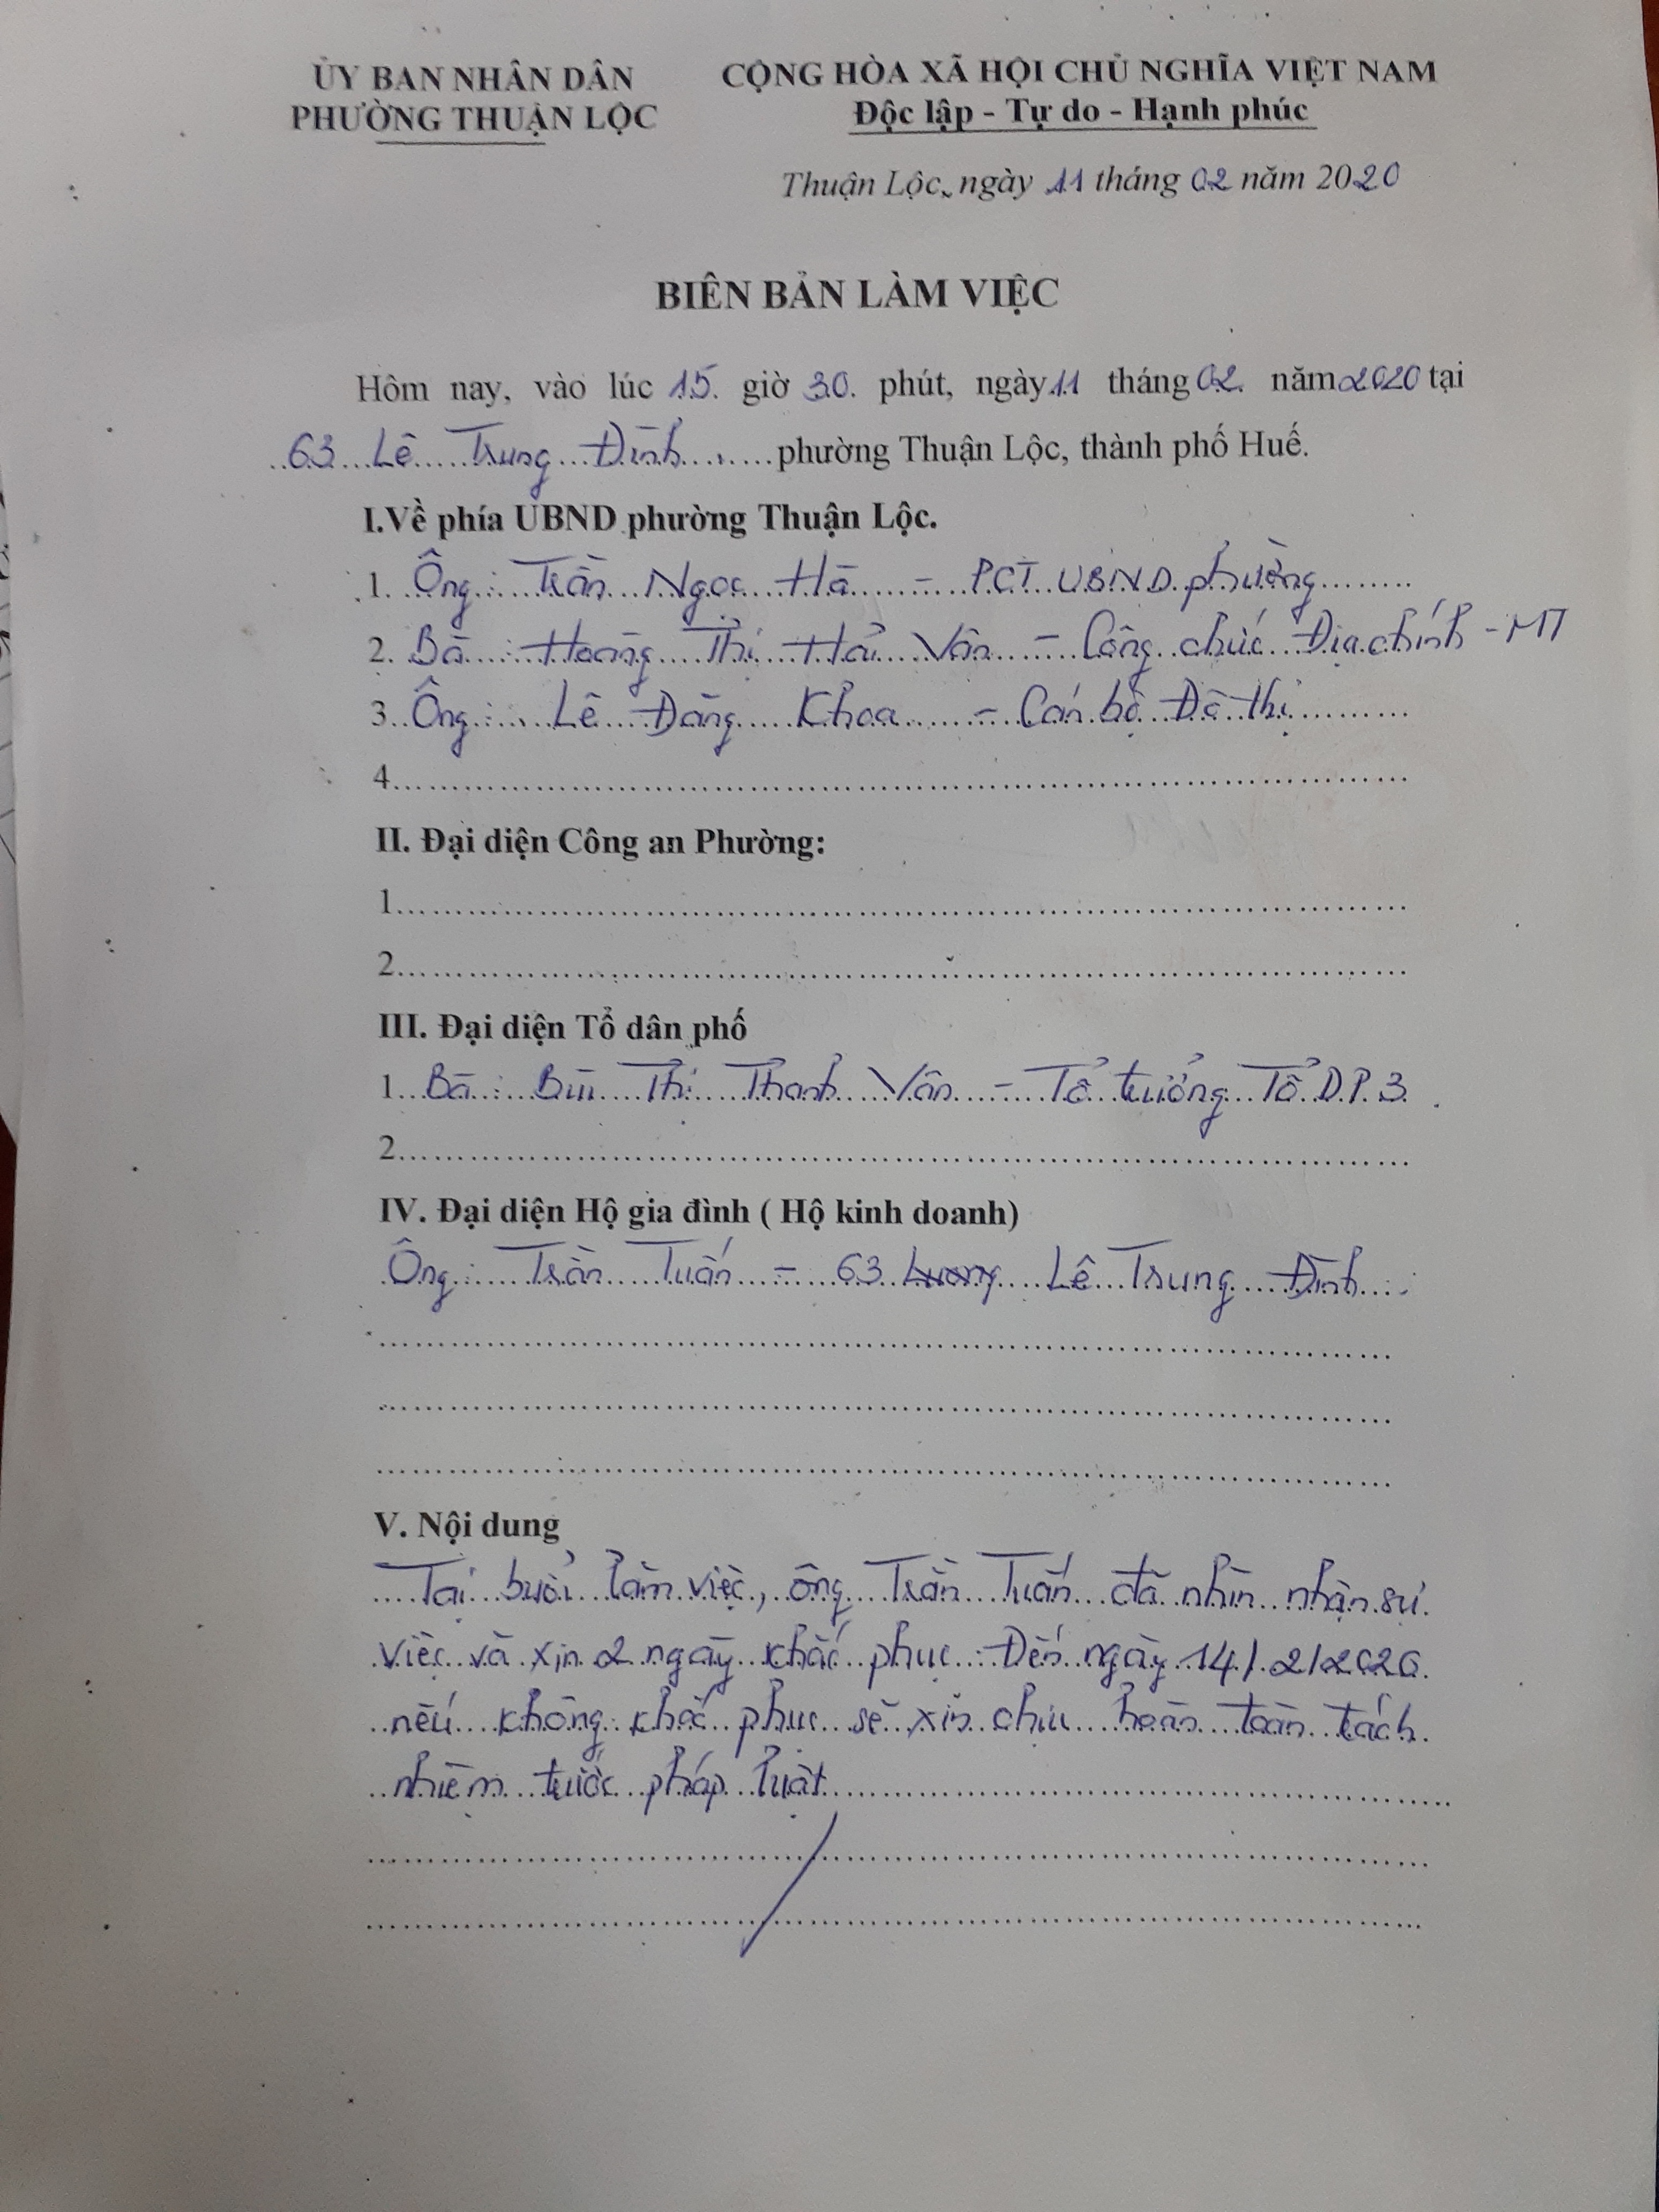 ỦY BAN NHÂN DÂN
PHƯỜNG THUẬN LỘC
CỘNG HÒA XÃ HỘI CHỦ NGHĨA VIỆT NAM
Độc lập - Tự do - Hạnh phúc
Thuận Lộc, ngày 11 tháng 02 năm 2020
BIÊN BẢN LÀM VIỆC
Hôm nay, vào lúc 15 giờ 30 phút, ngày 11 tháng 02 năm 2020 tại
63 Lê Trung Đình phường Thuận Lộc, thành phố Huế.
I.Về phía UBND phường Thuận Lộc.
1. Ông: Trần Ngọc Hà - PCT UBND phường
2. Bà: Hoàng Thị Hải Vân - Công chức Địa chính - MT
3. Ông: Lê Đăng Khoa - Cán bộ Đô thị
4.
II. Đại diện Công an Phường:
1.
2.
III. Đại diện Tổ dân phố
1. Bà: Bùi Thị Thanh Vân - Tổ trưởng Tổ D.P.3
2.
IV. Đại diện Hộ gia đình ( Hộ kinh doanh)
Ông: Trần Tuấn - 63 Lê Trung Đình
V. Nội dung
Tại buổi làm việc, ông Trần Tuấn đã nhìn nhận sự
việc và xin 2 ngày khắc phục. Đến ngày 14/2/2020
nếu không khắc phục sẽ xin chịu hoàn toàn trách
nhiệm trước pháp luật